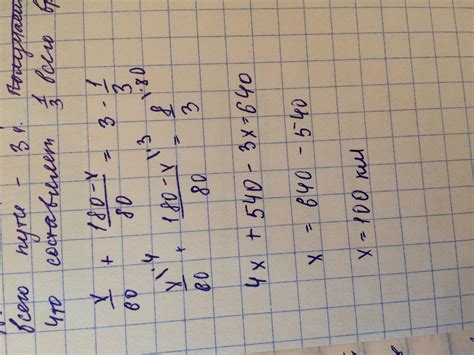 всего пути - 3 ч.
что составляет 1/3 всего
x/60 + (180-x)/80 = 3 - 1/3
x\4/60 + (180-x)\3/80 = 8\80/3
4x + 540 - 3x = 640
x = 640 - 540
x = 100 км